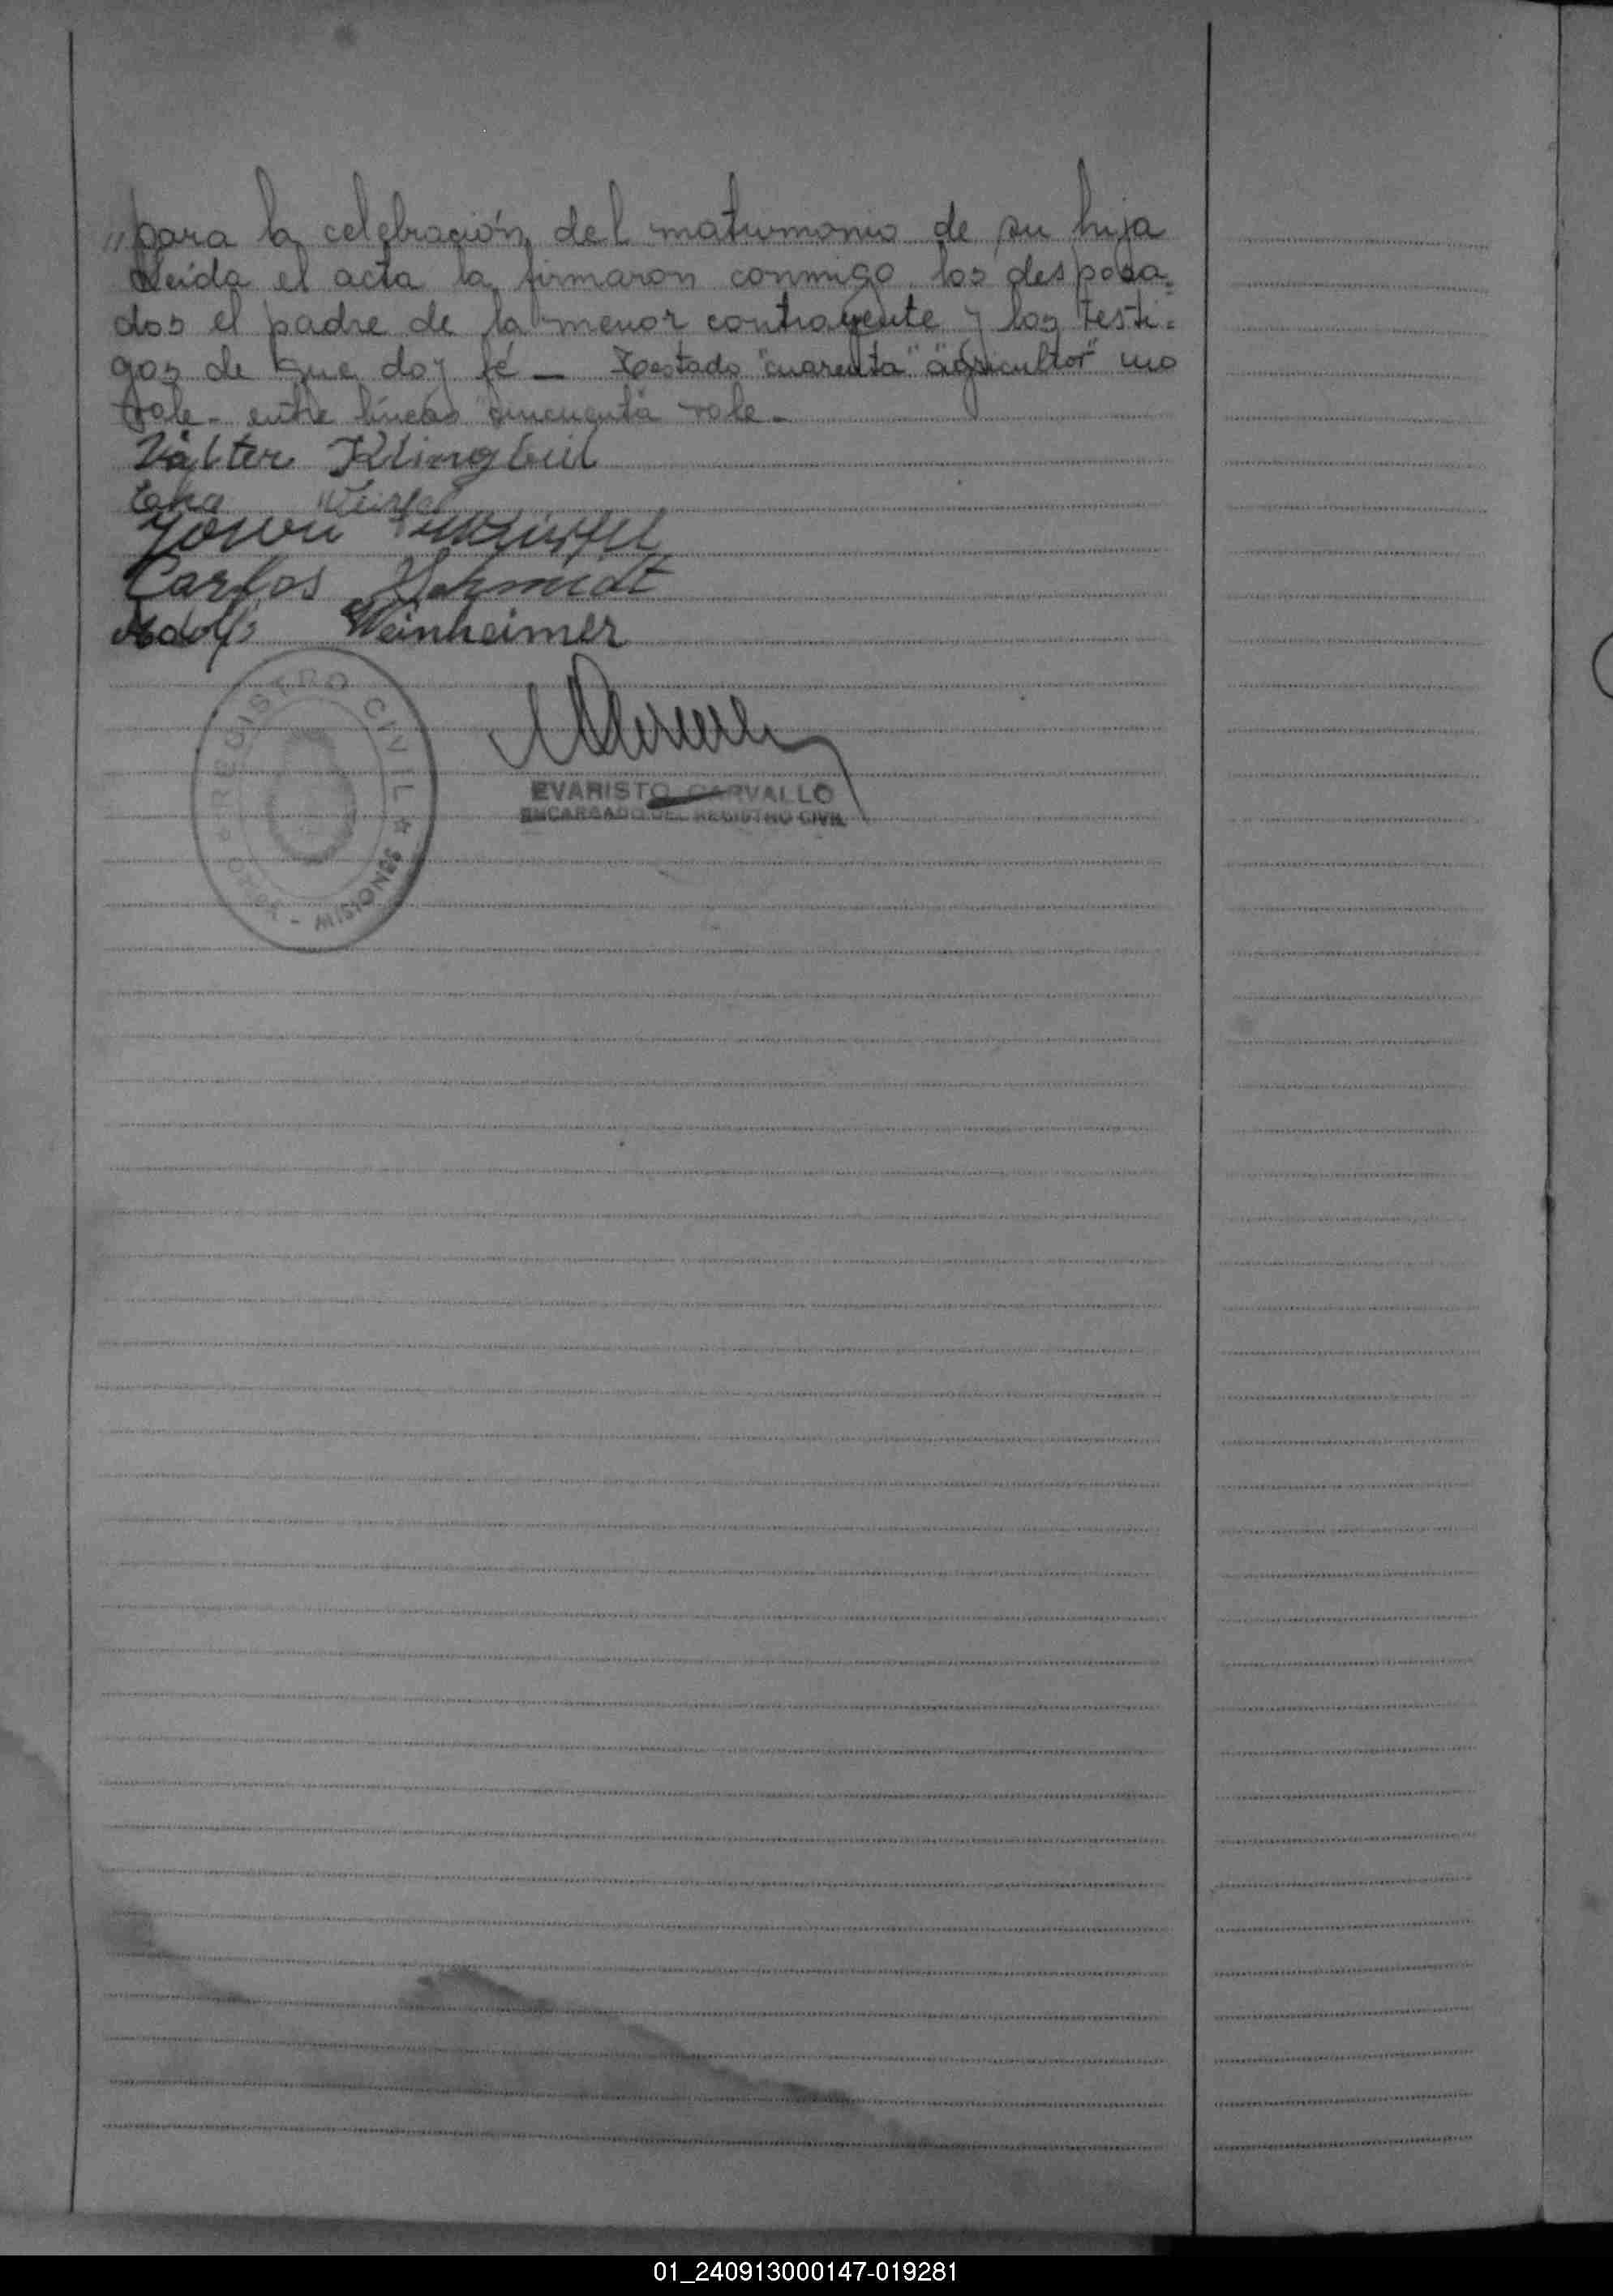 "para la celebración del matrimonio de su hija
Leída el acta la firmaron conmigo los desposa-
dos el padre de la menor contrayente y los testi-
gos de que doy fé — Testado "cuarenta" "agricultor" no
vale - entre líneas cincuenta vale -
Valter Klingbeil
Carlos Schmidt
Adolfo Weinheimer
REGISTRO CIVIL
- MISIONES
EVARISTO CARVALLO
ENCARGADO DEL REGISTRO CIVIL
01_240913000147-019281